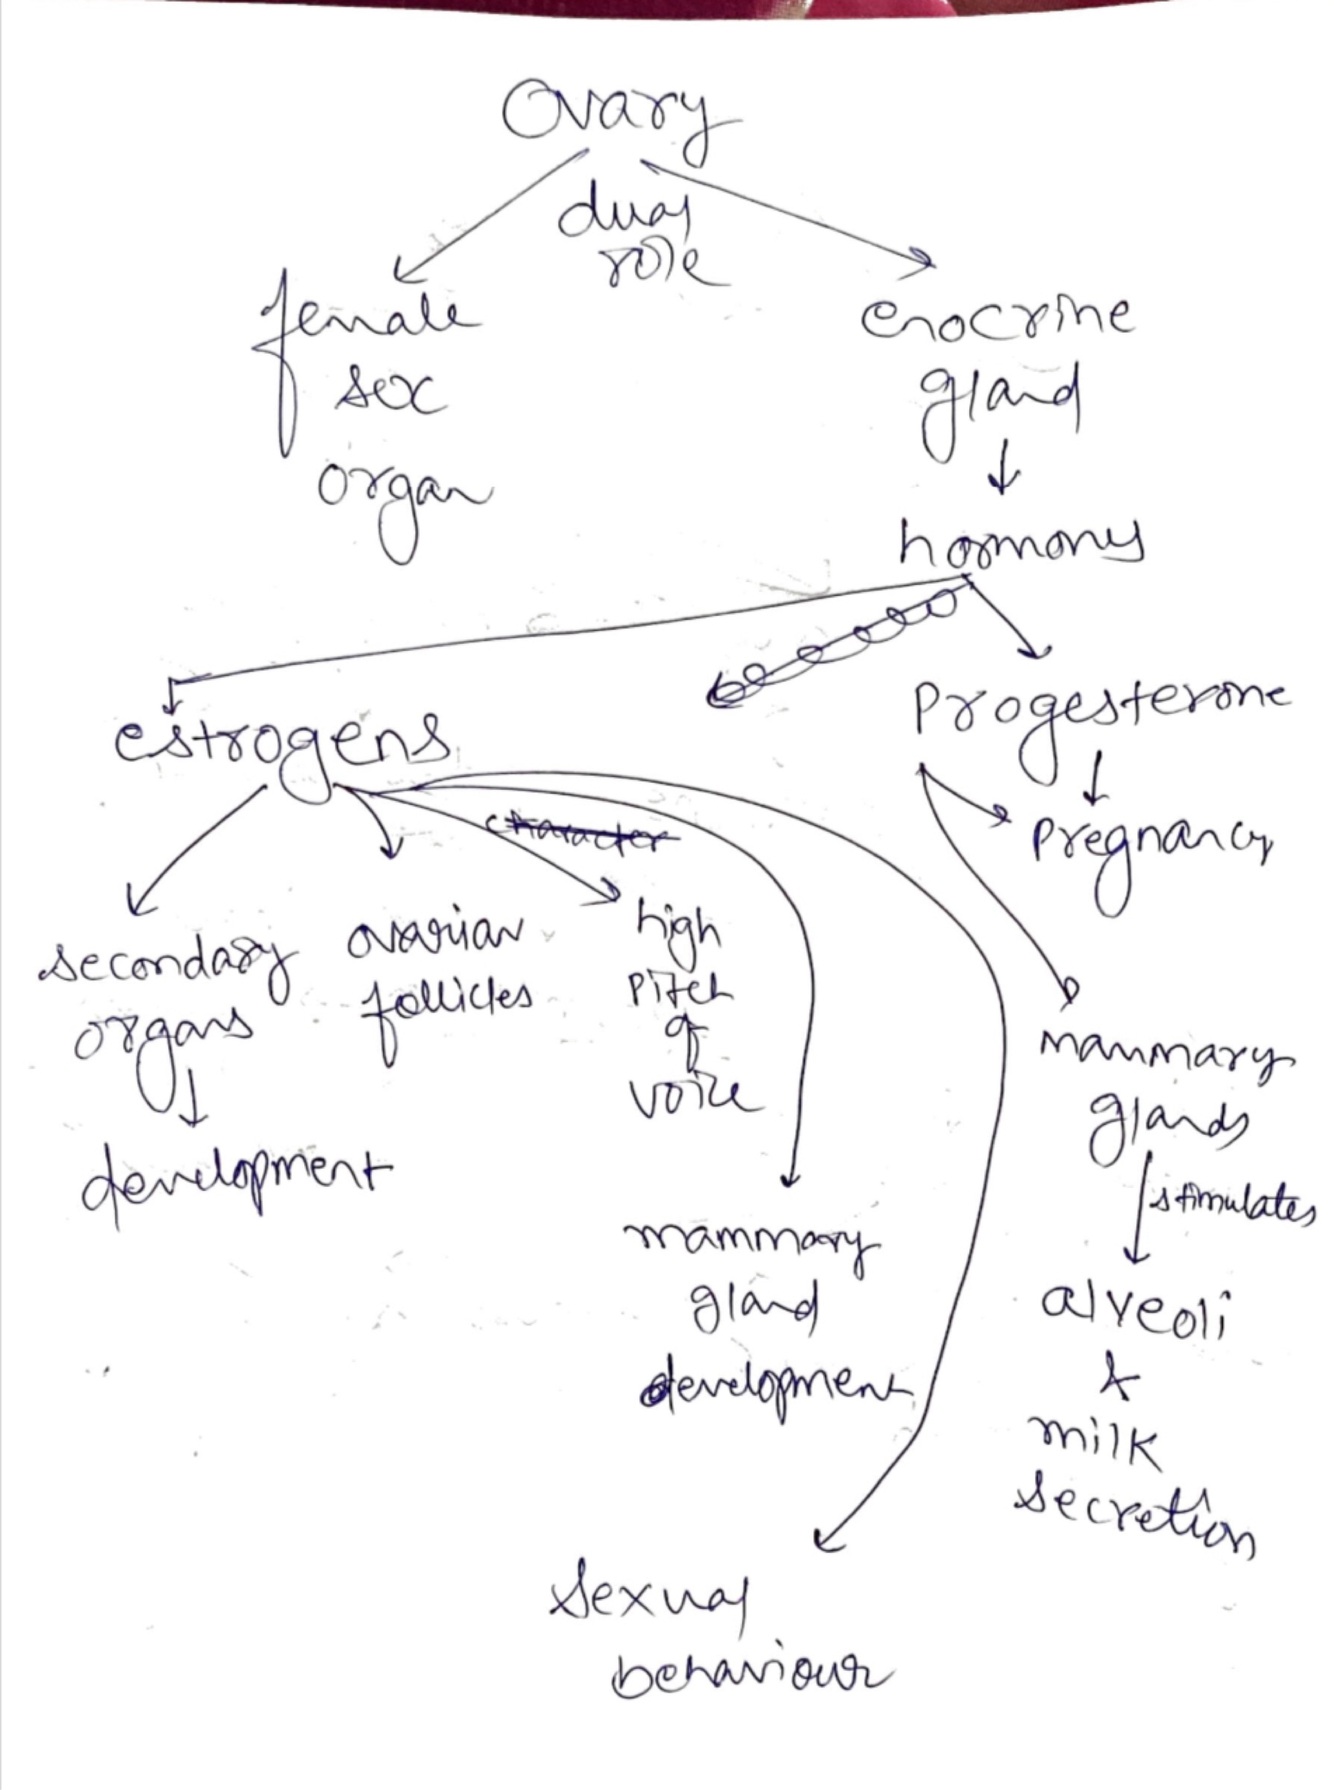 Ovary
dual
role
female
sex
organ
enocrine
gland
hormones
estrogens
Progesterone
character
Pregnancy
secondary
organs
development
ovarian
follicles
high
pitch
of
voice
mammary
gland
development
mammary
glands
stimulates
alveoli
&
milk
secretion
sexual
behaviour